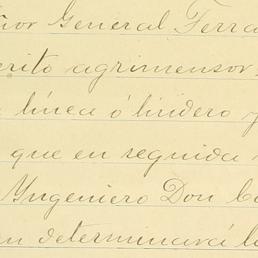 ñor General Ferra
erito agrimensor
línea ó lindero y
que en seguida
Yngeniero Don
determinará